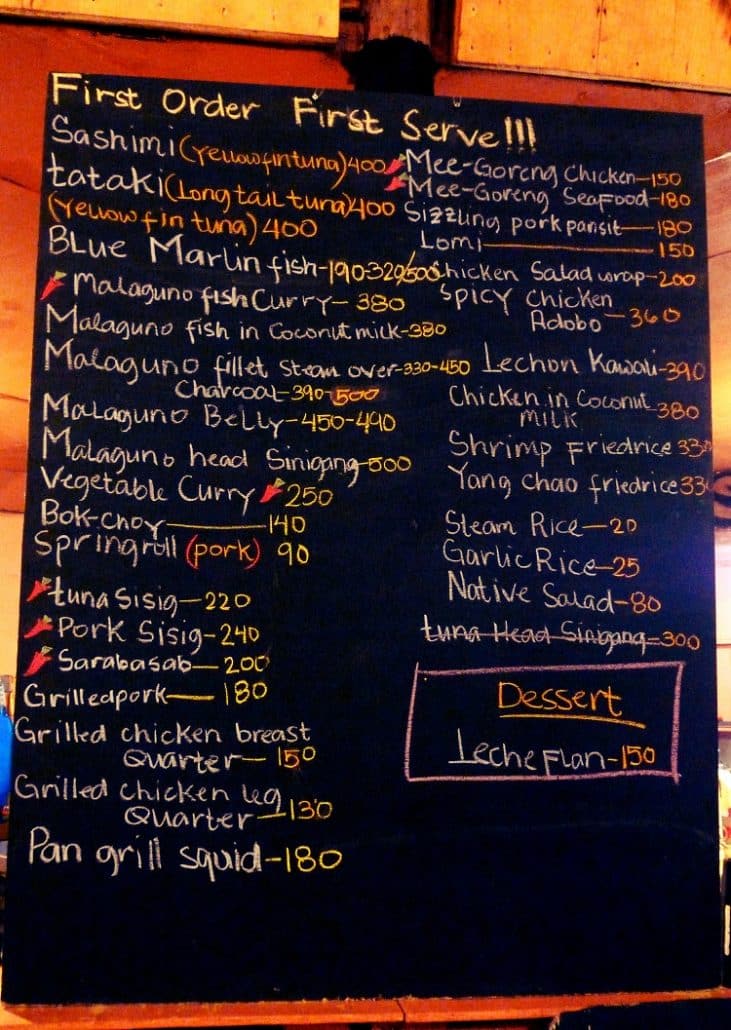 First Order First Serve!!!
Sashimi (Yellowfin tuna) 400
tataki (Long tail tuna) 400
(Yellow fin tuna) 400
Blue Marlin fish-190-320/500
Malaguno fish Curry-380
Malaguno fish in Coconut milk-380
Malaguno fillet Steam over-330-450
Charcoal-390-500
Malaguno Belly-450-490
Malaguno head Sinigang-500
Vegetable Curry 250
Bok-choy-140
Springroll (pork) 90
tuna Sisig-220
Pork Sisig-240
Sarabasab-200
Grilledpork-180
Grilled chicken breast
Quarter-150
Grilled chicken leg
Quarter-130
Pan grill squid-180
Mee-Goreng Chicken-150
Mee-Goreng Seafood-180
Sizzling pork pansit-180
Lomi-150
Chicken Salad wrap-200
Spicy Chicken
Adobo-360
Lechon Kawali-390
Chicken in Coconut
milk-380
Shrimp Friedrice 330
Yang chao friedrice 330
Steam Rice-20
Garlic Rice-25
Native Salad-80
tuna Head Sinigang-300
Dessert
Leche Flan-150